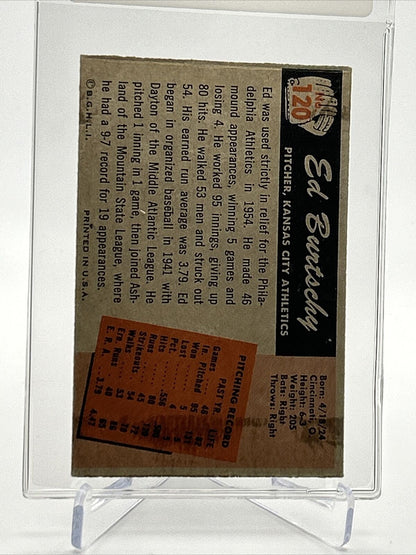 No.
120
Ed Burtschy
PITCHER, KANSAS CITY ATHLETICS
Born: 4/18/24
Cincinnati, O.
Height: 6-3
Weight: 205
Bats: Right
Throws: Right
Ed was used strictly in relief for the Phila-
delphia Athletics in 1954. He made 46
mound appearances, winning 5 games and
losing 4. He worked 95 innings, giving up
80 hits. He walked 53 men and struck out
54. His earned run average was 3.79. Ed
began in organized baseball in 1941 with
Dayton of the Middle Atlantic League. He
pitched 1 inning in 1 game, then joined Ash-
land of the Mountain State League, where
he had a 9-7 record for 19 appearances.
PITCHING RECORD
PAST YR. LIFE
Games 46
In. Pitched 95
Won 5
Lost 4
Pct. .556
Hits 80
Runs
Strikeouts 54
Walks 53
Ern. Runs 40
E. R. A. 3.79
© B.G.H.L.I.
PRINTED IN U.S.A.